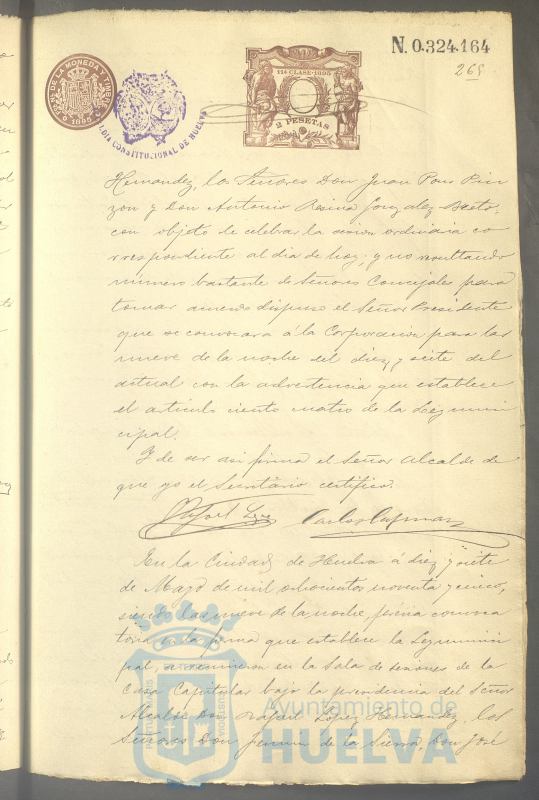 N. 0.324.164
265
11ª CLASE-1895
2 PESETAS
DE LA MONEDA Y TIMBRE
1895
CONSTITUCIONAL DE HUELVA
Hernandez, los Señores Don Juan Pons Pin
zon y Don Antonio Resina Gonzalez Nieto,
con objeto de celebrar la sesion ordinaria co
rrespondiente al dia de hoy; y no resultando
número bastante de Señores Concejales para
tomar acuerdo dispuso el Señor Presidente
que se convocara á la Corporacion para las
nueve de la noche del diez y siete del
actual con la advertencia que establece
el articulo ciento cuatro de la Ley muni
cipal.
Y de ser asi firma el Señor Alcalde de
que yo el Secretario certifico.
Rafael Lopez Carlos
En la Ciudad de Huelva á diez y siete
de Mayo de mil ochocientos noventa y cinco,
siendo las nueve de la noche, prévia convoca
toria en la forma que establece la Ley munici
pal, se reunieron en la Sala de sesiones de la
Casa Capitular bajo la presidencia del Señor
Alcalde Don Rafael López Hernandez, los
Señores Don de la Sierra, Don José
Ayuntamiento de
HUELVA